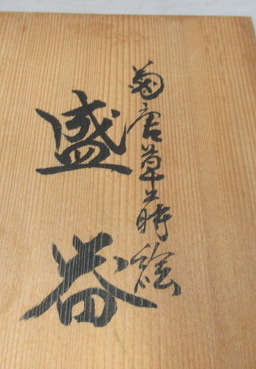 菊唐草蒔絵
盛器